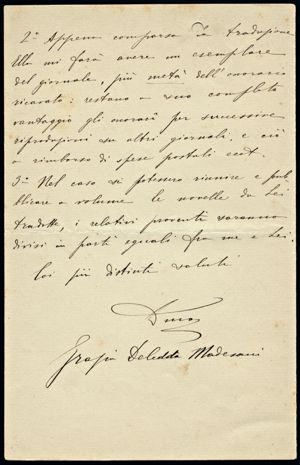 2° Appena comparsa la traduzione
Ella mi farà avere un esemplare
del giornale, più metà dell'onorario
ricavato: restano a suo completo
vantaggio gli onorari per successive
riproduzioni su altri giornali, e ciò
a rimborso di spese postali ecct.
3° Nel caso si potessero riunire e pub
blicare a volume le novelle da Lei
tradotte, i relativi proventi saranno
divisi in parti eguali fra me e Lei.
Coi più distinti saluti
Grazia Deledda Madesani